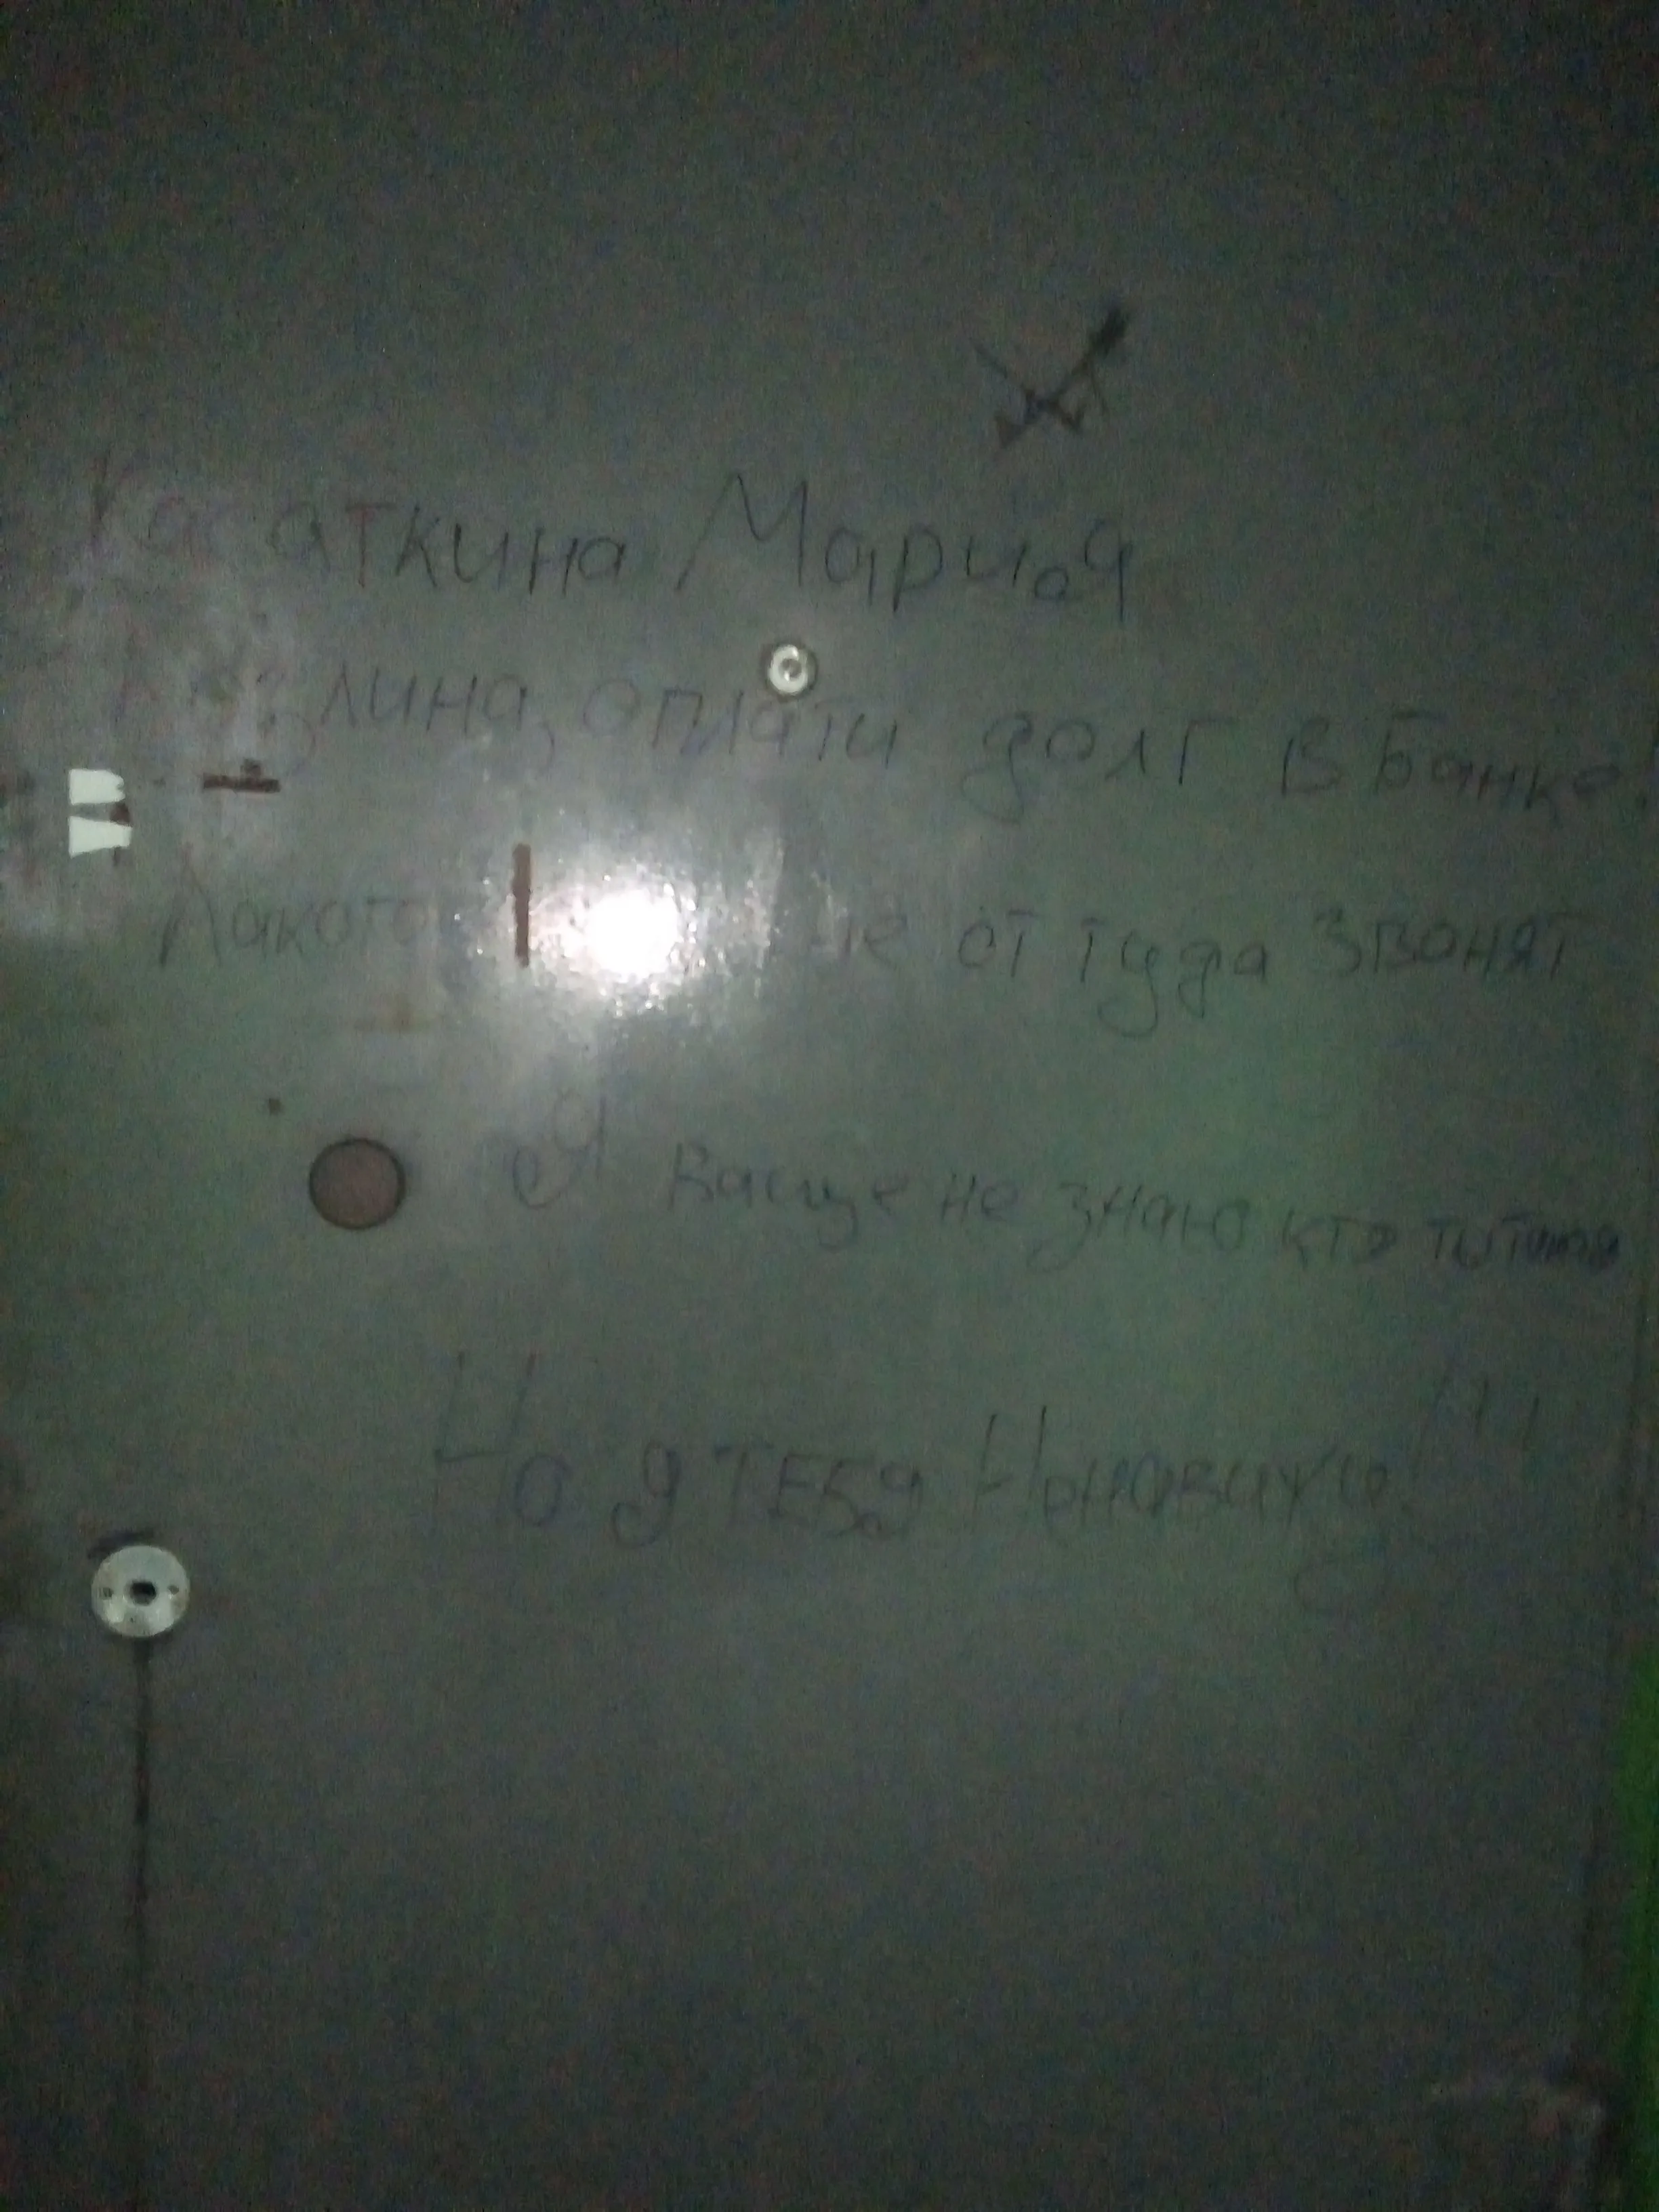 Касаткина Мария
оплати долг в Банке!
от туда звонят
Я ваще не знаю кто ты такая
Но я ТЕБЯ Ненавижу!!!